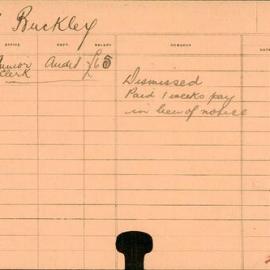 Buckley
OFFICE DEPT. SALARY REMARKS DATE
Junior Audit £65
Clerk
Dismissed
Paid 1 weeks pay
in lieu of notice